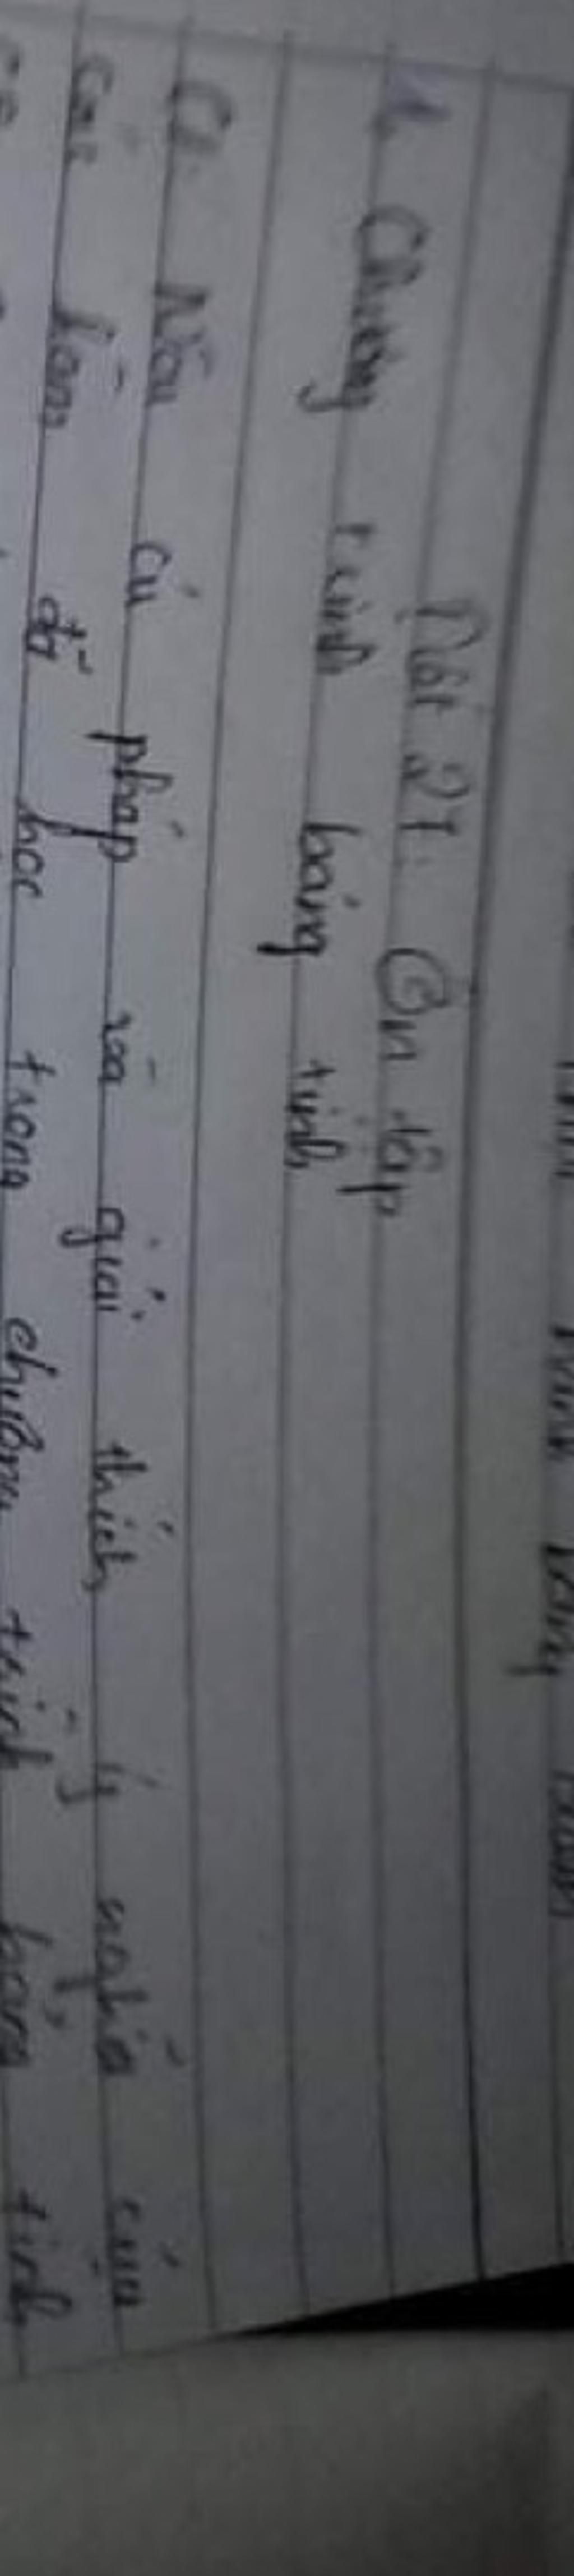 Tiết 21: Ôn tập
1. Chương trình bảng tính
a. Nêu cú pháp và giải thích ý nghĩa của
các hàm đã học trong chương trình bảng tính